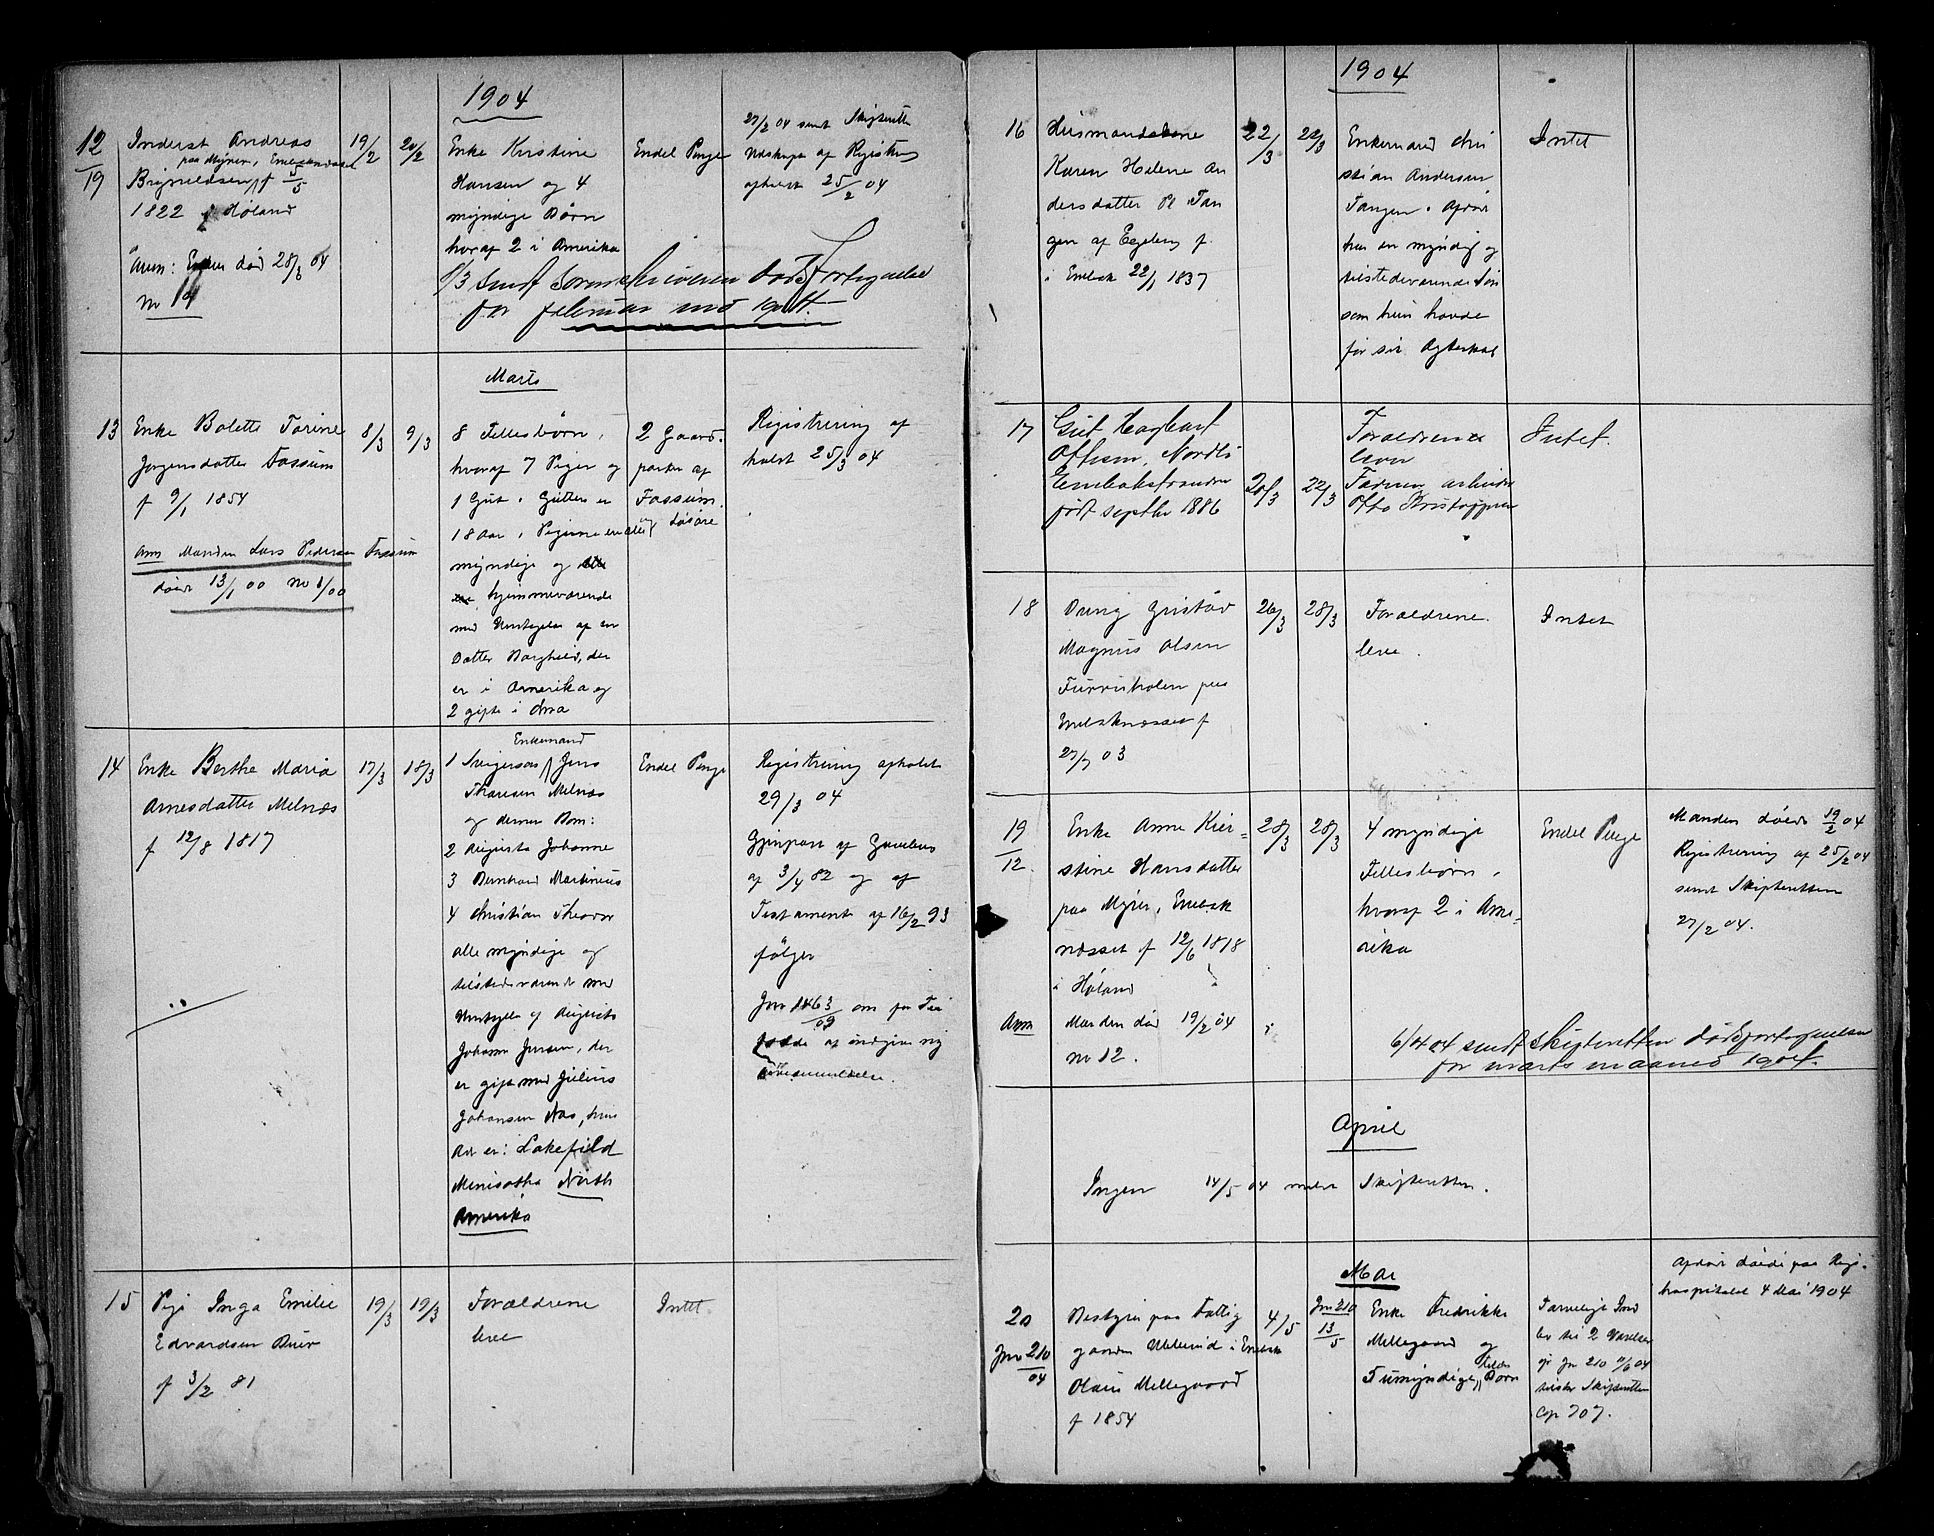 1904
12
19
Inderst Andreas
paa Myrer, Enebaknesset
Brynildsen f 5/5
1822 i Høland
Anm: Enken død 28/3 04
No 19
19/2
20/2
Enke Kristine
Hansen og 4
myndige Børn
hvoraf 2 i Amerika
Endel Penge
27/2 04 sendt Skifteretten
af Registrering
afholdt 25/2 04
1/3 sendt Sorenskriveren Dødsfortegnelse
for februar md 1904.
Marts
13
Enke Bolette Torine
Jørgensdatter Fossum
f 9/1 1854
Anm Manden Lars Pedersen Fossum
døde 13/1 00 No 1/00
8/3
9/3
8 Fellesbørn,
hvoraf 7 Piger og
1 Gut. Gutten er
18 Aar, Pigerne er alle
myndige og
hjemmeværende
med Undtagelse af en
Datter Borghild, der
er i Amerika og
2 gifte i
2 Gaard-
parter af
Fossum
og Løsøre
Registrering af
holdt 25/3 04
14
Enke Berthe Maria
Arnesdatter Melnæs
f 12/8 1817
17/3
18/3
Enkemand
1 Svigersøn Jens
Thoresen Melnæs
og dennes Børn:
2 Augusta Johanne
3 Bernhard Martinius
4 Christian Theodor
alle myndige og
tilstedeværende med
Undtagelse af Augusta
Johanne Jensen, der
er gift med Julius
Johansen Aas, hvis
Adr er: Lakefield
Minisotha North
Amerika
Endel Penge
Registrering afholdt
29/3 04
Gjenpart af
af 3/4 82 og af
Testamente af 16/2 93
følger
Jnr 1463/03 om
at indgive sig
15
Pige Inga Emilie
Edvardsen
f 3/2 81
19/3
19/3
Forældrene
leve
Intet
1904
16
Husmandskone
Karen Helene An
dersdatter Pl Tan
gen af Egeberg f.
i Enebak 22/1 1837
22/3
22/3
Enkemand Chri
stian Andersen
Tangen. Afdøde
har en myndig og
tilstedeværende Søn
som hun havde
før sit Ægteskab
Intet
17
Gut Hagbart
Ottesen, Nordli
Enebakstranden
født septbr 1886
20/3
22/3
Forældrene
lever
Faderen arbeider
Otto Kristoffersen
Intet.
18
Dreng Gustav
Magnus Olsen
Furruholen paa
Enebaknesset f
27/7 03
26/3
28/3
Forældrene
leve.
Intet
19
12.
Enke Anne Kier-
stine Hansdatter
paa Myrer, Enebak
næsset f 12/6 1818
i Høland
Anm Manden død 19/2 04
No 12.
28/3
28/3
4 myndige
Fellesbørn,
hvoraf 2 i Ame-
rika
Endel Penge
Manden døde 19/2 04
Registrering af 25/2 04
sendt Skifteretten
27/2 04.
6/4 04 sendt Skifteretten dødsfortegnelsen
for marts maaned 1904.
April
Ingen 14/5 04 meldt Skifteretten.
Mai
20
Jnr 210/04
Bestyrer paa Fattig
gaarden i Enebak
Olaus Mellegaard
f 1854
4/5
Jnr 210
13/5
Enke Fredrikke
Mellegaard og
7 umyndige Fælles Børn
til 2
Jnr 210 11/6 04
Skifteretten
Cop 707.
Afdøde døde paa Rigs-
hospitalet 4 Mai 1904